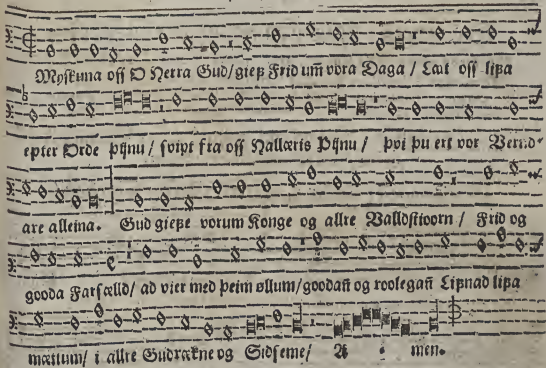 Myskuna oss O Herra Gud/ gieß Frid um̃ vora Daga / Lat oss lißa
epter Orde þijnu/ svipt fra oss Hallæris Pijnu/ þvi þu ert vor Vernd-
are alleina. Gud gieße vorum Konge og allre Valldstioorn / Frid og
gooda Farsælld/ ad vier med þeim øllum/ goodañ og roolegañ Lißnad lißa
mættum/ i allre Gudrækne og Sidseme/ A - men.